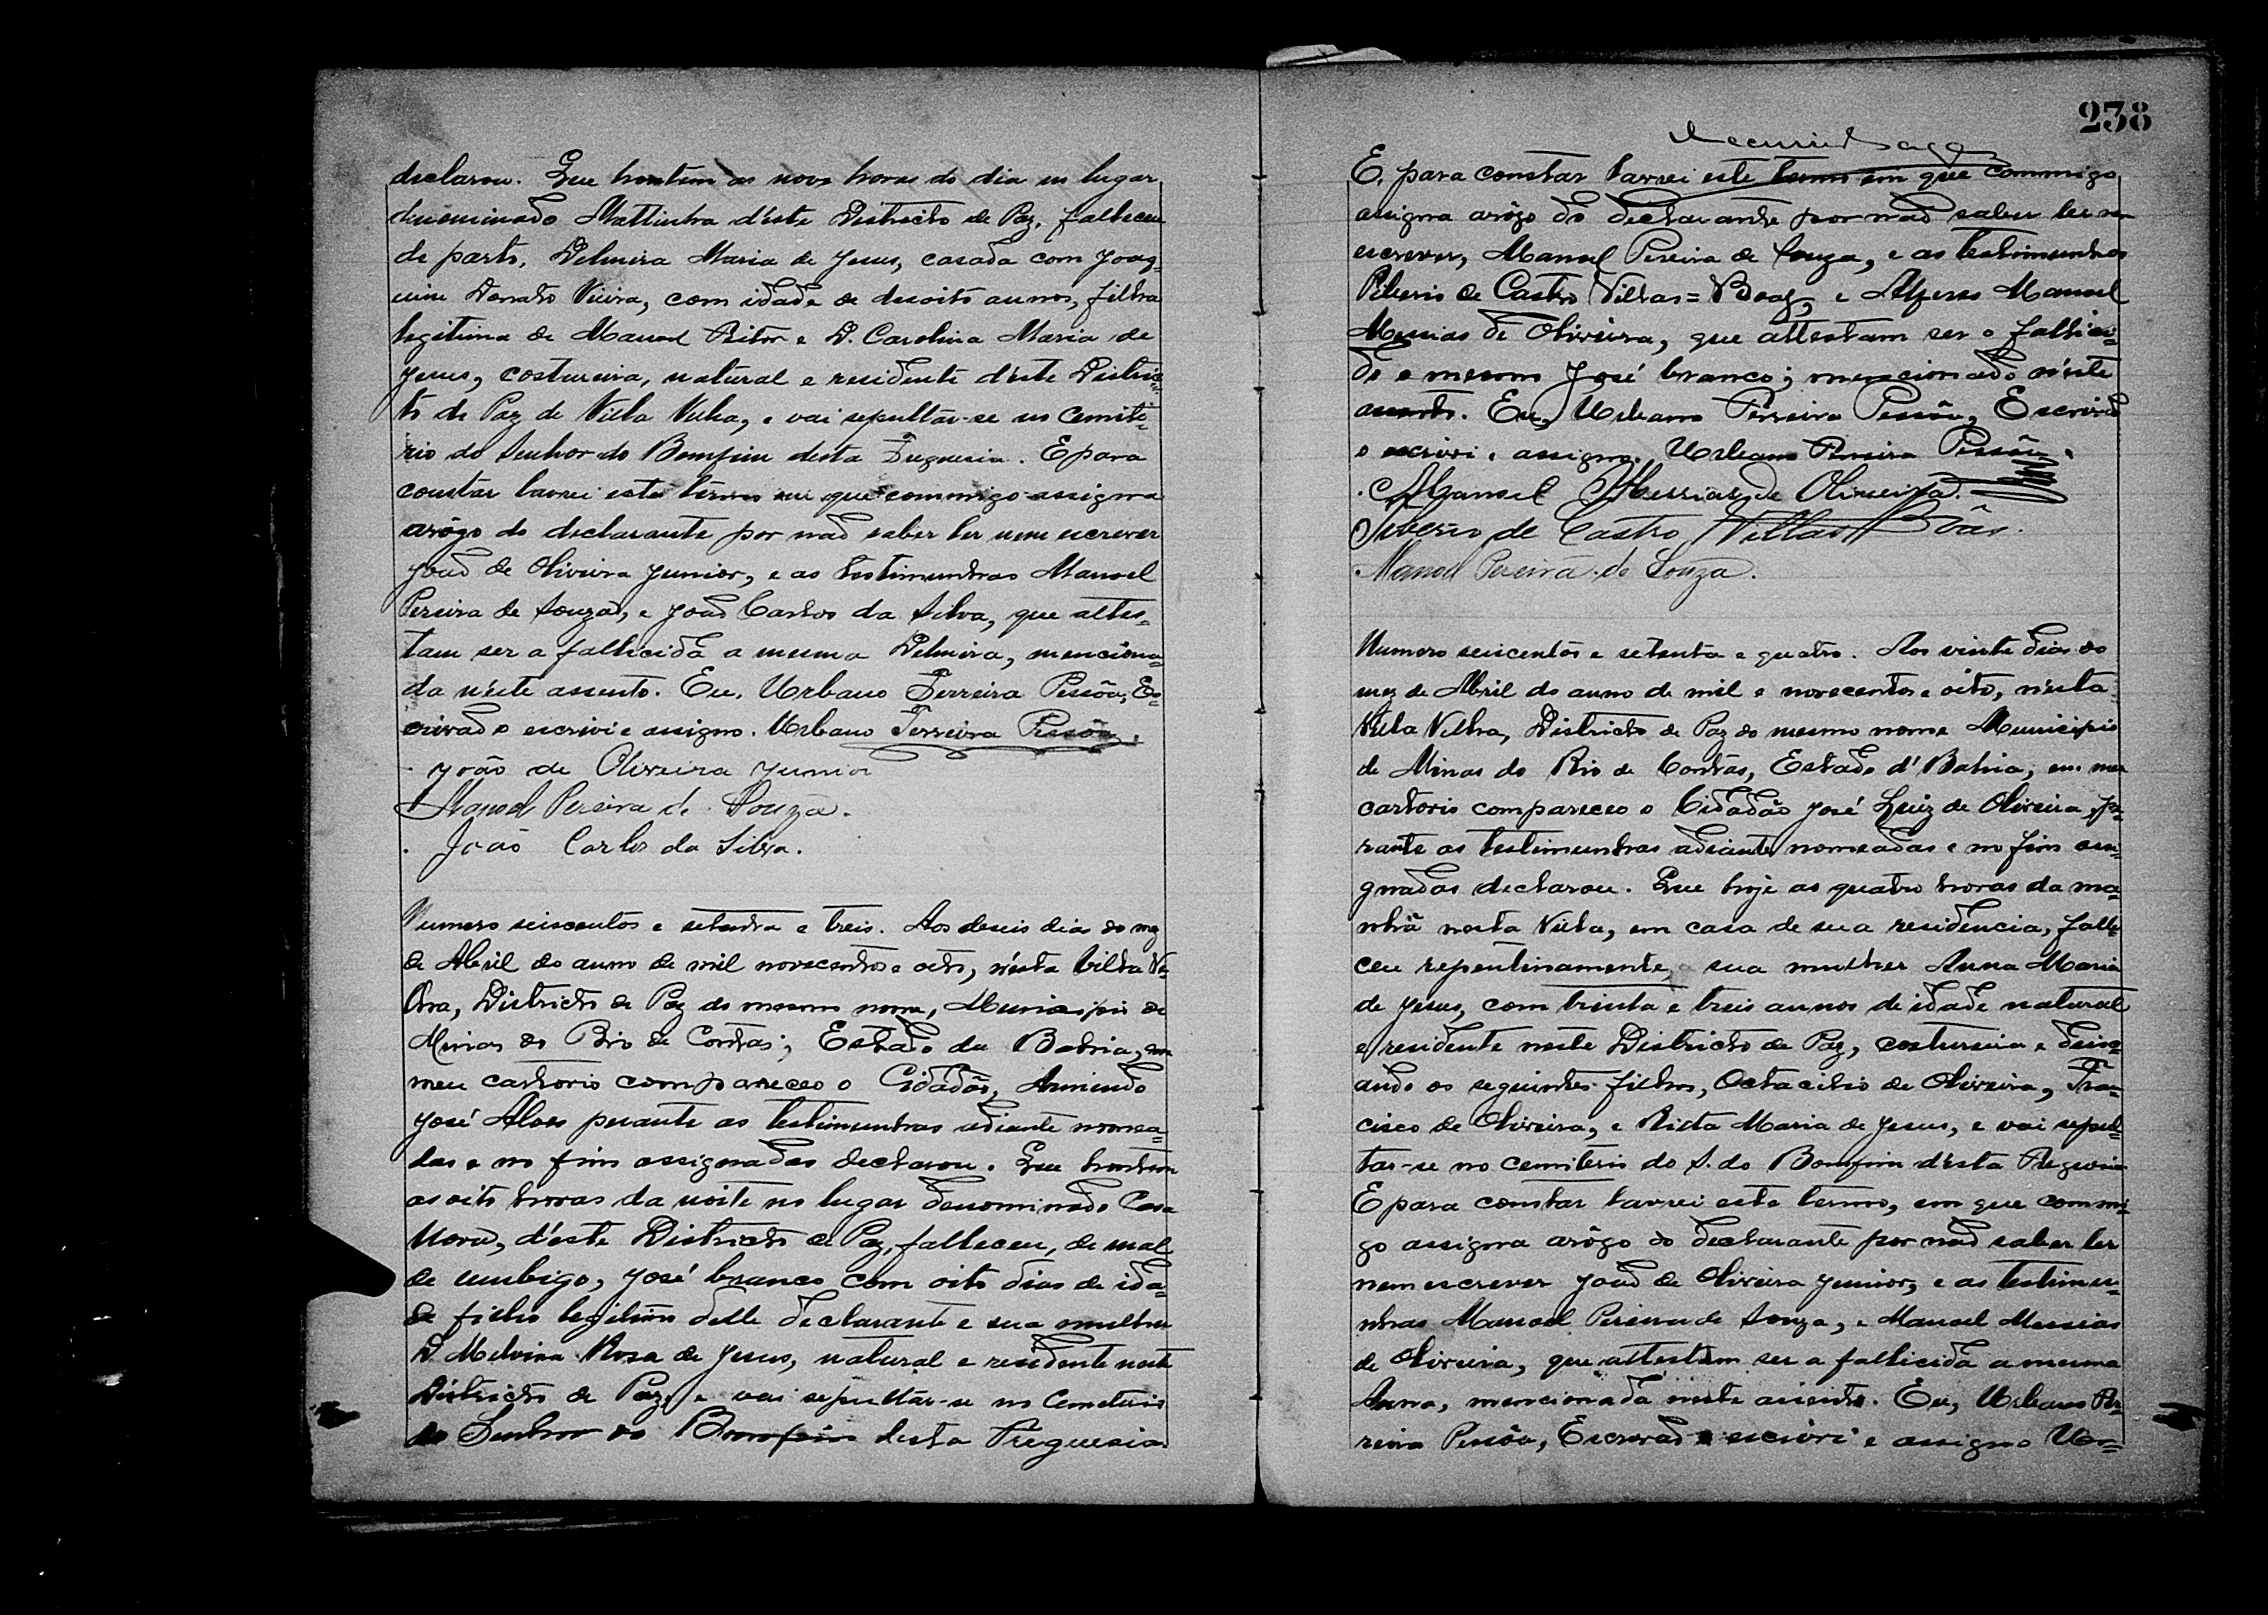 declarou. Que hontem as nove horas do dia en lugar
denominado Mattinha d'éste Districto de Paz, falleceu
de parto, Delmira Maria de Jesus, casada com Joaq=
uim Donato Vieira, com idade de desoito annos, filha
legitima de Manoel Vitor e D. Carolina Maria de
Jesus, costureira, natural e residente d'éste Distric=
to de Paz de Villa Velha, e vai sepultar-se no Cemité=
rio do Senhor do Bomfim desta Freguesia. E para
constar lavrei este têrmo em que commigo assigna
arôgo do declarante por não saber ler nem escrever
João de Oliveira Junior, e as testimunhas Manoel
Pereira de Souza, e João Carlos da Silva, que attes=
tam ser a fallicida a mesma Delmira, menciona=
da n'éste assento. Eu, Urbano Ferreira Pessôa, Es=
crivão o escrivi e assigno. Urbano Ferreira Pessôa.
João de Oliveira Junior
Manoel Pereira de Souza.
João Carlos da Silva.
Numero seiscentos e setenta e treis. Aos deseis dias do mez
de Abril do anno de mil novecentos e oito, n'ésta Villa Ve=
lha, Districto de Paz do mesmo nome, Municipio de
Minas do Rio de Contas, Estado da Bahia, em
meu cartorio compareceo o Cidadão, Armindo
José Alves perante as testimunhas adiante nomea=
das e no fim assignadas declarou. Que hontem
as oito horas da noite no lugar denominado Casa
Nova, d'éste Districto de Paz, falleceu, de mal
de umbigo, José branco com oito dias de ida=
de filho legitimo delle declarante e sua mulher
D. Melvina Rosa de Jesus, natural e residente neste
Districto de Paz, e vai sepultar-se no Cemeterio
do Senhor do Bomfim desta Freguesia
238
E, para constar lavrei este termo em que commigo
assigna arôgo do declarante por não saber ler nem
escrever, Manoel Pereira de Souza, e as testimunhas
Tiberio de Castro Villas=Boas, e Alferes Manoel
Messias de Oliveira, que attestam ser o fallici=
do o mesmo José branco; mencionado n'éste
assento. Eu, Urbano Ferreira Pessôa, Escrivão
o escrivi e assigno. Urbano Ferreira Pessôa.
Manoel Messias de Oliveira.
Tiberio de Castro Villas Bôas.
Manoel Pereira de Souza.
Numero seiscentos e setenta e quatro. Aos vinte dias do
mez de Abril do anno de mil e novecentos e oito, n'ésta
Villa Velha, Districto de Paz do mesmo nome Municipio
de Minas do Rio de Contas, Estado d'Bahia, em meu
cartorio compareceo o Cidadão José Luiz de Oliveira, pe=
rante as testimunhas adiante nomeadas e no fim assi=
gnadas declarou. Que hoje as quatro horas da ma=
nhã nesta Villa, em casa de sua residencia, falle=
ceu repentinamente, a sua mulher Anna Maria
de Jesus, com trinta e treis annos de idade natural
e residente neste Districto de Paz, costureira e deix=
ando os seguintes filhos, Octacilio de Oliveira, Fran=
cisco de Oliveira, e Rita Maria de Jesus, e vai sepul=
tar-se no cemiterio do S. do Bomfim d'ésta Freguesia
E para constar lavrei este termo, em que commi=
go assigna arôgo do declarante por não saber ler
nem escrever João de Oliveira Junior, e as testimu=
nhas Manoel Pereira de Souza, e Manoel Messias
de Oliveira, que attestam ser a fallicida a mesma
Anna, mencionada neste assento. Eu, Urbano Fer=
reira Pessôa, Escrivão o escrivi e assigno Ur=